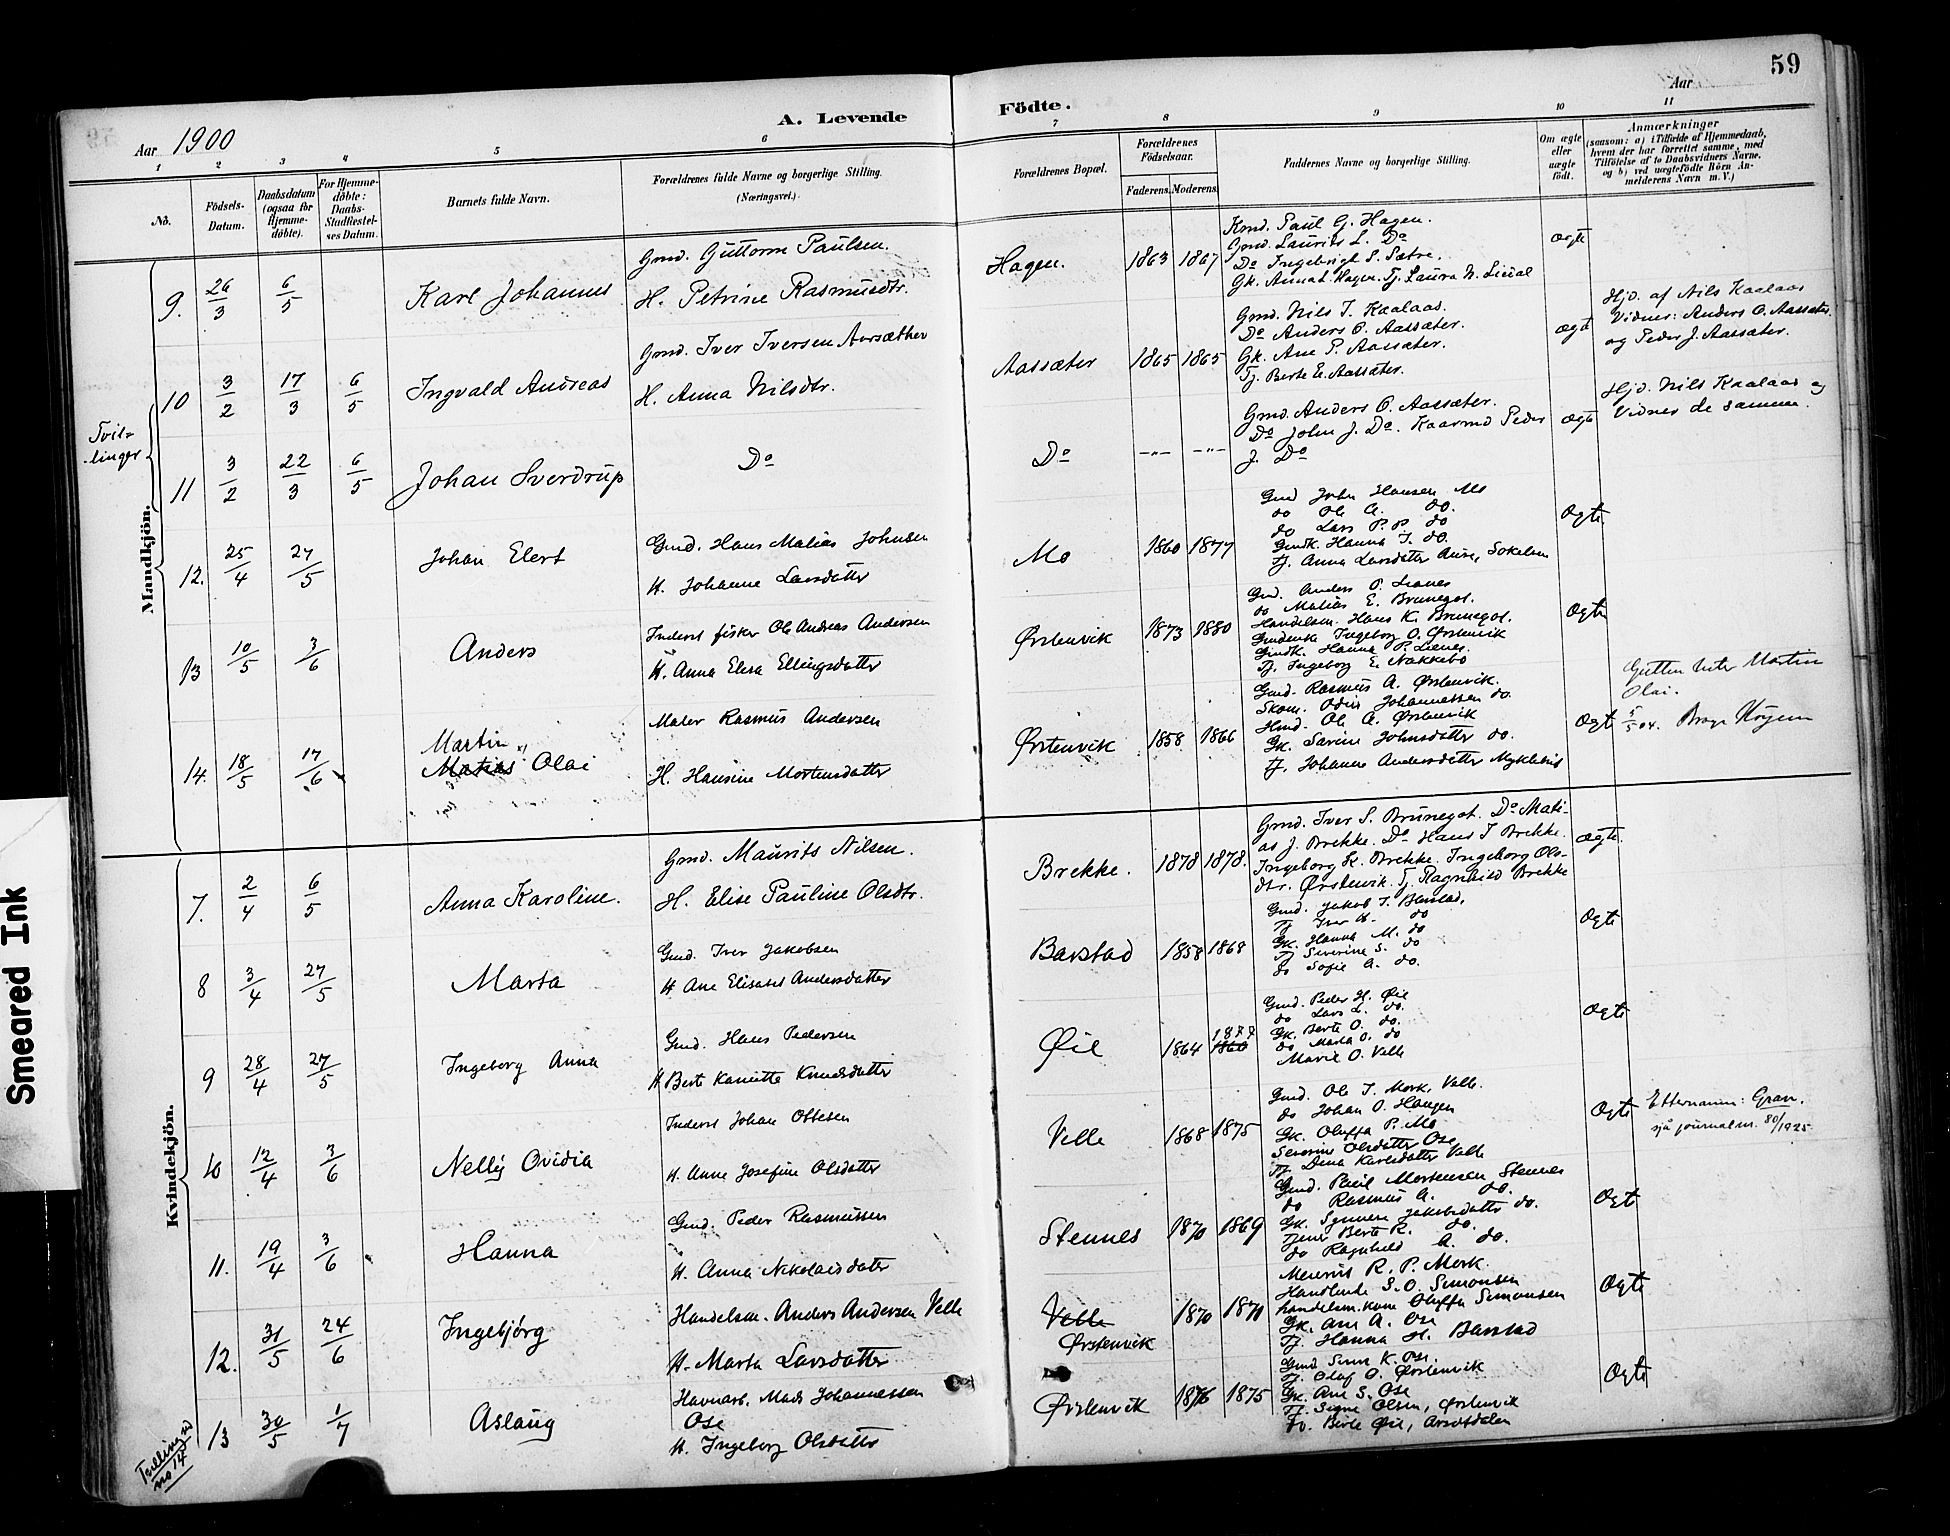 59
Aar 1900
A. Levende
Födte.
Aar
1 2 3 4 5 6 7 8 9 10 11
No.
Födsels-
Datum.
Daabsdatum
(ogsaa for
Hjemme-
döbte).
For Hjemme-
döbte:
Daabs-
Stadfæstel-
ses Datum.
Barnets fulde Navn.
Forældrenes fulde Navne og borgerlige Stilling.
(Næringsvei.)
Forældrenes Bopæl.
Forældrenes
Födselsaar.
Faderens. Moderens.
Faddernes Navne og borgerlige Stilling.
Om ægte
eller
uægte
födt.
Anmærkninger
(saasom: a) i Tilfælde af Hjemmedaab,
hvem der har forrettet samme, med
Tilföielse af to Daabsvidners Navne.
og b) ved uægtefödte Börn An-
melderens Navn m. V.)
Mandkjön.
9. 26/3 6/5 Karl Johannes
Gmd. Guttorm Paulsen.
H. Petrine Rasmusdtr.
Hagen. 1863 1867
Kmd. Paul G. Hagen.
Gmd. Laurits L. Do
Do Ingebrigt S. Sætre.
Gk. Anna L. Hagen. Tj. Laura N.
Ægte
Tvil-
linger
10 3/2 17/3 6/5 Ingvald Andreas
Gmd. Iver Iversen Aarsæther
H. Anna Nilsdtr.
Aassæter 1865 1865
Gmd. Nils J. Kaalaas.
Do Anders O. Aassæter.
Gk. Ane P. Aassæter.
Tj. Berte E. Aassæter.
Ægte
Hjd. af Nils Kaalaas
Vidner: Anders O. Aassæter
og Peder J. Aassæter.
11 3/2 22/3 6/5 Johan Sverdrup
Do
Do -"- -"-
Gmd. Anders O. Aassæter.
Do John J. Do. Kaarmd Peder
J. Do
Ægte
Hjd. Nils Kaalaas og
Vidner de samme.
12. 25/4 27/5 Johan Elert
Gmd. Hans Matias Johnsen
H. Johanne Larsdatter
Mo 1860 1877
Gmd John Hansen Mo
do Ole A. do.
do Lars P. P. do
Gmdk. Hanna J. do.
Tj. Anna Larsdatter
Ægte
13 10/5 3/6 Anders
Inderst fisker Ole Andreas Andersen
H. Anna Elisa Ellingsdatter
Ørstenvik 1873 1880
Gmd. Anders P.
do Matias E. Brunegot.
Handelsm. Hans K. Brunegot.
Ingeborg O. Ørstenvik
Gmdk. Hanna P.
Tj. Ingeborg E. Nakkebø
Ægte
14. 18/5 17/6 Martin
Matias Olai
Maler Rasmus Andersen
H. Hansine Mortensdatter
Ørstenvik 1858 1866
Gmd. Rasmus A. Ørstenvik.
Skom. Odin Johannessen do.
Hmd. Ole A. Ørstenvik
Gk. Sarine Johnsdatter do.
Tj. Johanne Andersdatter Myklebust
Ægte
Gutten heter Martin
Olai.
5/5 04.
Kvindekjön.
7. 2/4 6/5 Anna Karoline.
Gmd. Maurits Nilsen.
H. Elise Pauline Olsdtr.
Brekke. 1878 1878.
Gmd. Iver S. Brunegot. Do Mati-
as J. Brekke. Do Hans J Brekke.
Ingeborg K. Brekke. Ingeborg Ols-
dtr. Ørstenvik. Tj. Ragnhild Brekke
Ægte
8 3/4 27/5 Marta
Gmd. Iver Jakobsen
H Ane Elisabet Andersdatter
Barstad 1858 1868
Gmd. Jakob J. Barstad,
Tj Iver H. do
Gk. Hanna M. do
Tj Severine S. do
do Sofie A. do.
Ægte
9 28/4 27/5 Ingeborg Anna
Gmd. Hans Pedersen
H Berte Knudsdatter
Øie 1864 1877
1860
Gmd. Peder H. Øie
do Lars L. do.
Gk. Berte O. do.
do Marta O. do
Marie O. Velle
Ægte
10 12/4 3/6 Nelly Ovidia
Inderst Johan Ottesen
H. Anne Josefine Olsdatter
Velle 1868 1875
Gmd. Ole J. Mork, Velle.
do Johan O. Haugen
Gk. Oluffa P. Mo
Severine Olsdatter Ose
Tj Dina Karlsdatter Velle
Ægte
Etternamn: Gran.
sjå journal nr. 80/1925.
11. 19/4 3/6 Hanna
Gmd. Peder Rasmussen
H. Anna Nikolaisdatter
Stennes 1870 1869
Gmd. Paul Mortensen Stennes
do Rasmus A. do.
Gk. Synneve Jakobsdatter do.
Tjener Berte R. do.
do Ragnhild A. do.
Ægte
12. 31/5 24/6 Ingebjörg
Handelsm. Anders Andersen Velle
H. Marta Larsdatter
Velle
Ørstenvik 1870 1870
R. P. Mork.
Handlende S. O. Simonsen
handelsm. kone Oluffa Simonsen
Gk. Ane A. Ose
Tj. Hanna H. Barstad
Ægte
13 30/5 1/7 Aslaug
Havnarb. Mads Johannessen
Ose
H. Ingeborg Olsdatter
Ørstenvik 1876 1875
Gmd K. Ose
Tj. Olaf O. Ørstenvik
Gk. Ane S. Ose
Tj. Signe Olsen, Ørstenvik
do. Berte Øie, Aarsetdalen
Ægte
Tvilling m
no 14
Smeared Ink